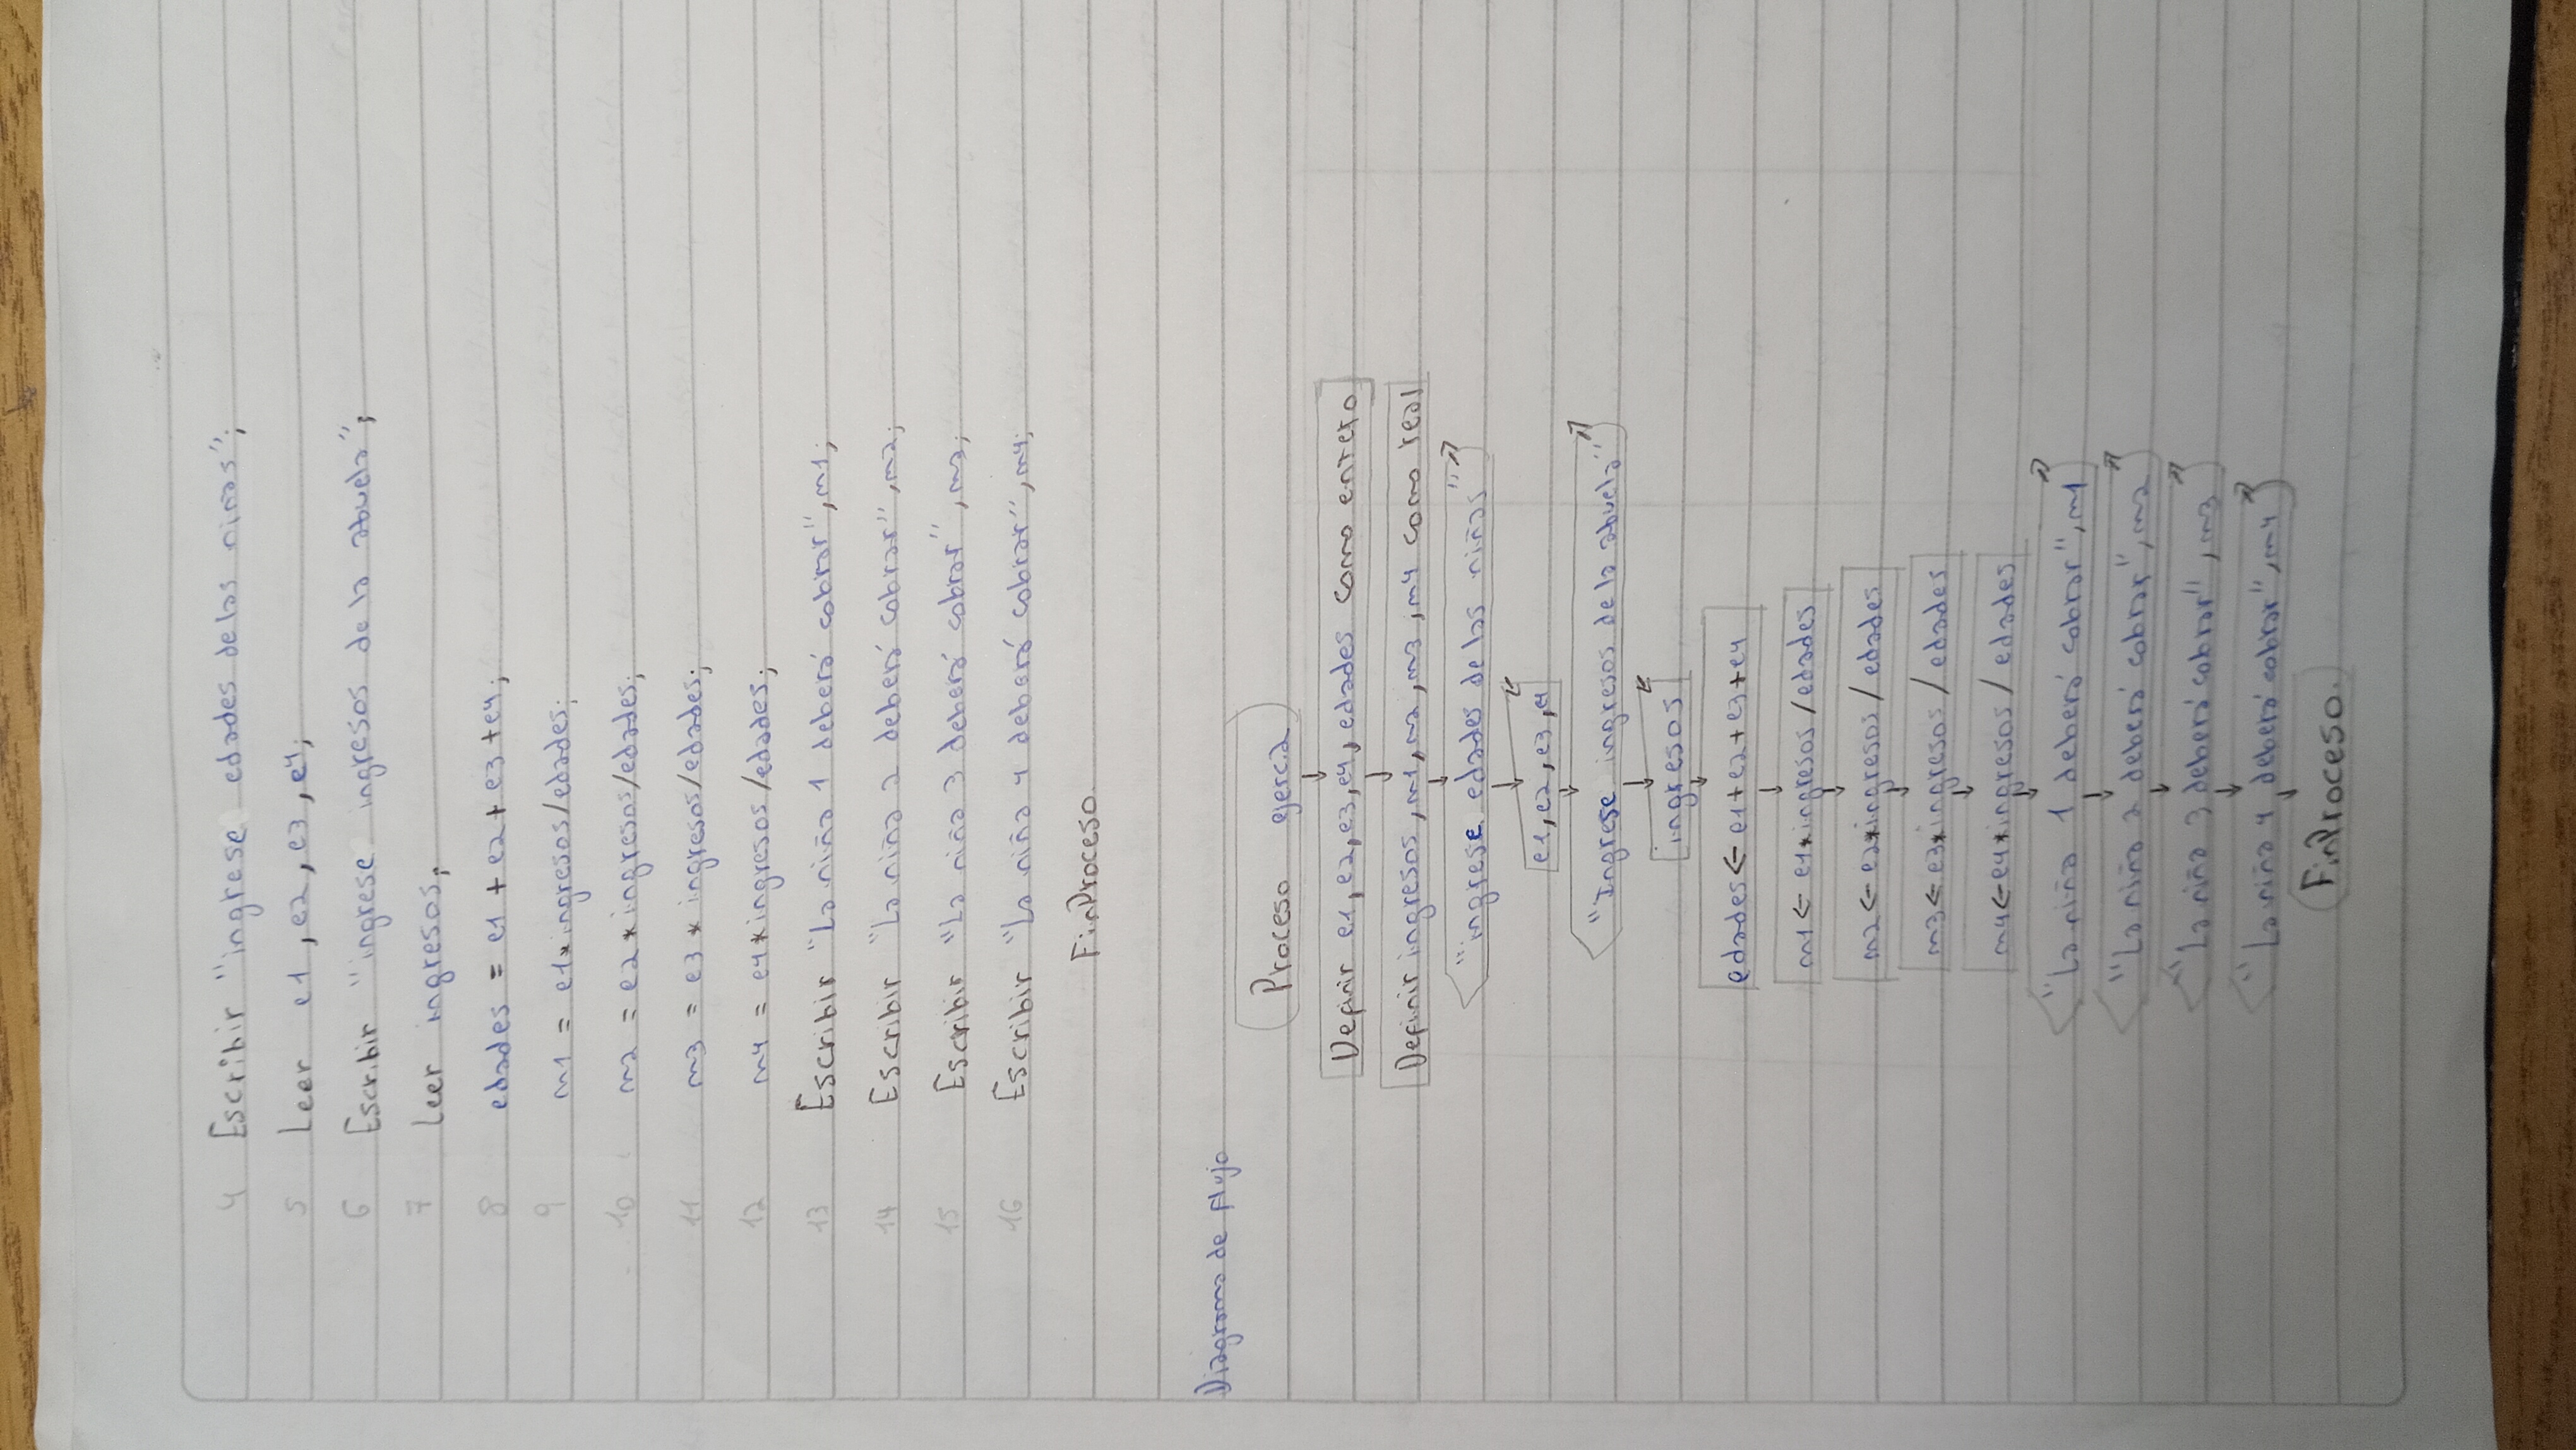 4 Escribir "ingrese edades de las niñas";
5 Leer e1, e2, e3, e4;
6 Escribir "ingrese ingresos de la abuela";
7 Leer ingresos;
8 edades = e1 + e2 + e3 + e4;
9 m1 = e1*ingresos/edades;
10 m2 = e2*ingresos/edades;
11 m3 = e3*ingresos/edades;
12 m4 = e4*ingresos/edades;
13 Escribir "La niña 1 deberá cobrar", m1;
14 Escribir "La niña 2 deberá cobrar", m2;
15 Escribir "La niña 3 deberá cobrar", m3;
16 Escribir "La niña 4 deberá cobrar", m4;
FinProceso
Diagrama de flujo
Proceso ejerc.2
Definir e1, e2, e3, e4, edades como entero
Definir ingresos, m1, m2, m3, m4 como real
"ingrese edades de las niñas"
e1, e2, e3, e4
"Ingrese ingresos de la abuela"
ingresos
edades ← e1+e2+e3+e4
m1 ← e1*ingresos / edades
m2 ← e2*ingresos / edades
m3 ← e3*ingresos / edades
m4 ← e4*ingresos / edades
"La niña 1 deberá cobrar", m1
"La niña 2 deberá cobrar", m2
"La niña 3 deberá cobrar", m3
"La niña 4 deberá cobrar", m4
FinProceso.